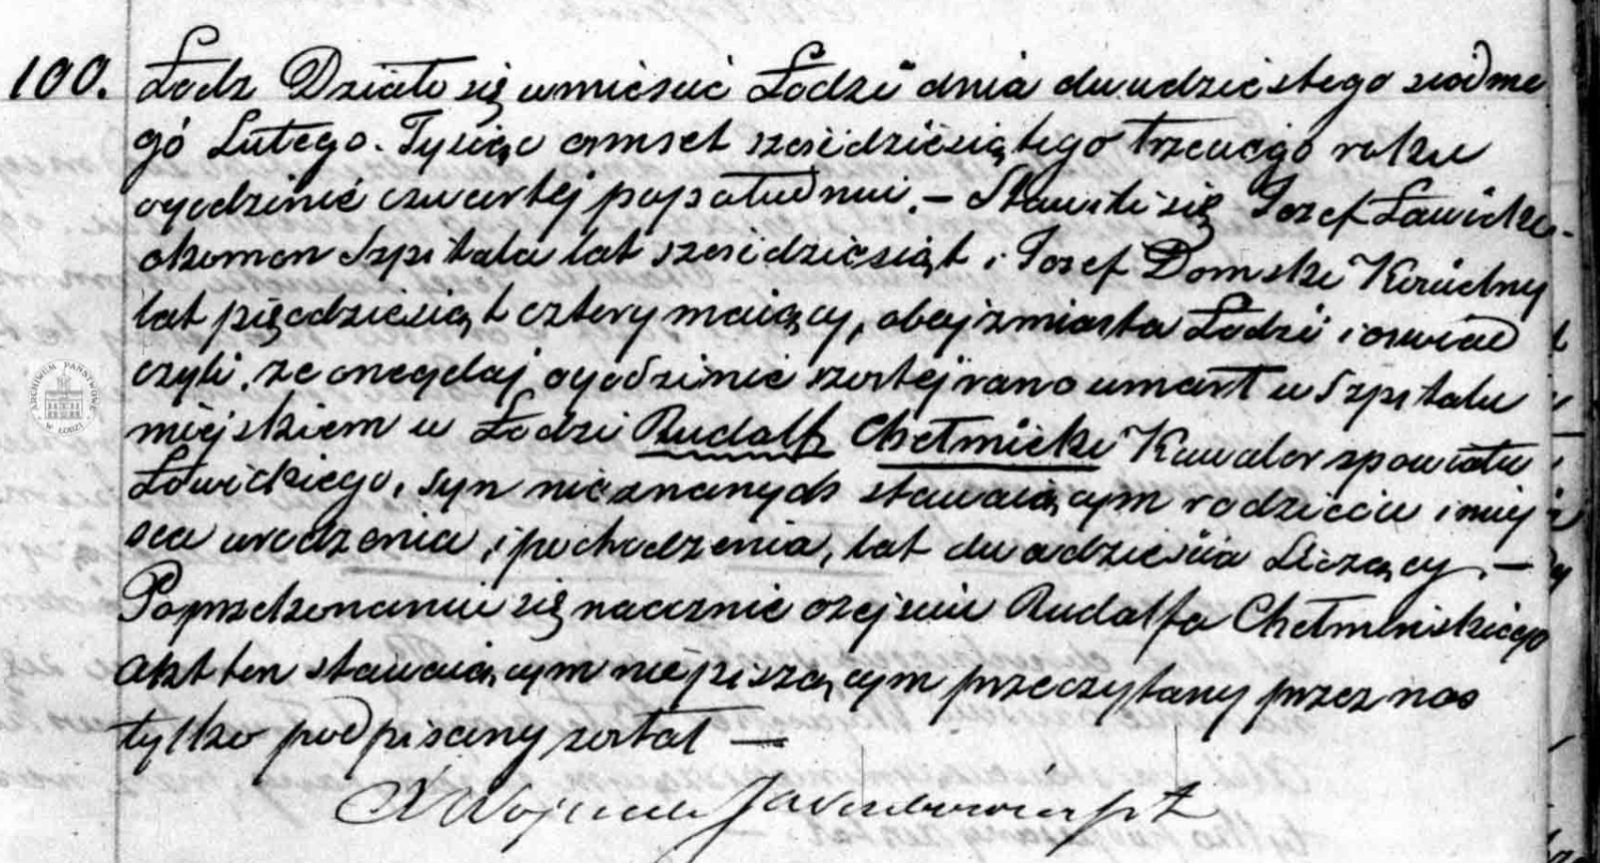 100. Łodz Działo się w mieście Łodzi dnia dwudziestego siodme
gó Lutego. Tysiąc ośmset sześcdziesiątego trzeciego roku
ogodzinie czwartej popołudniu. – Stawili się Jozef Sawicki
ekonom Szpitala lat sześcdziesiąt i Jozef Domski Kościelny
lat pięcdziesiąt cztery maiący, obaj z miasta Łodzi i oswiad
czyli, że onegdaj ogodzinie szostej rano umarł w Szpitalu
miejskiem w Łodzi Rudolf Chełmicki Kawaler z powiatu
Łowickiego, syn nieznanych stawaiącym rodzicow i miej
sca urodzenia, i pochodzenia, lat dwadzieścia Liczący. –
Poprzekonaniu się naocznie o zejściu Rudolfa Chełmińskiego
akt ten stawaiącym niepiszącym przeczytany przez nas
tylko podpisany został —
X Wojciech
ARCHIWUM PAŃSTWOWE W ŁODZI